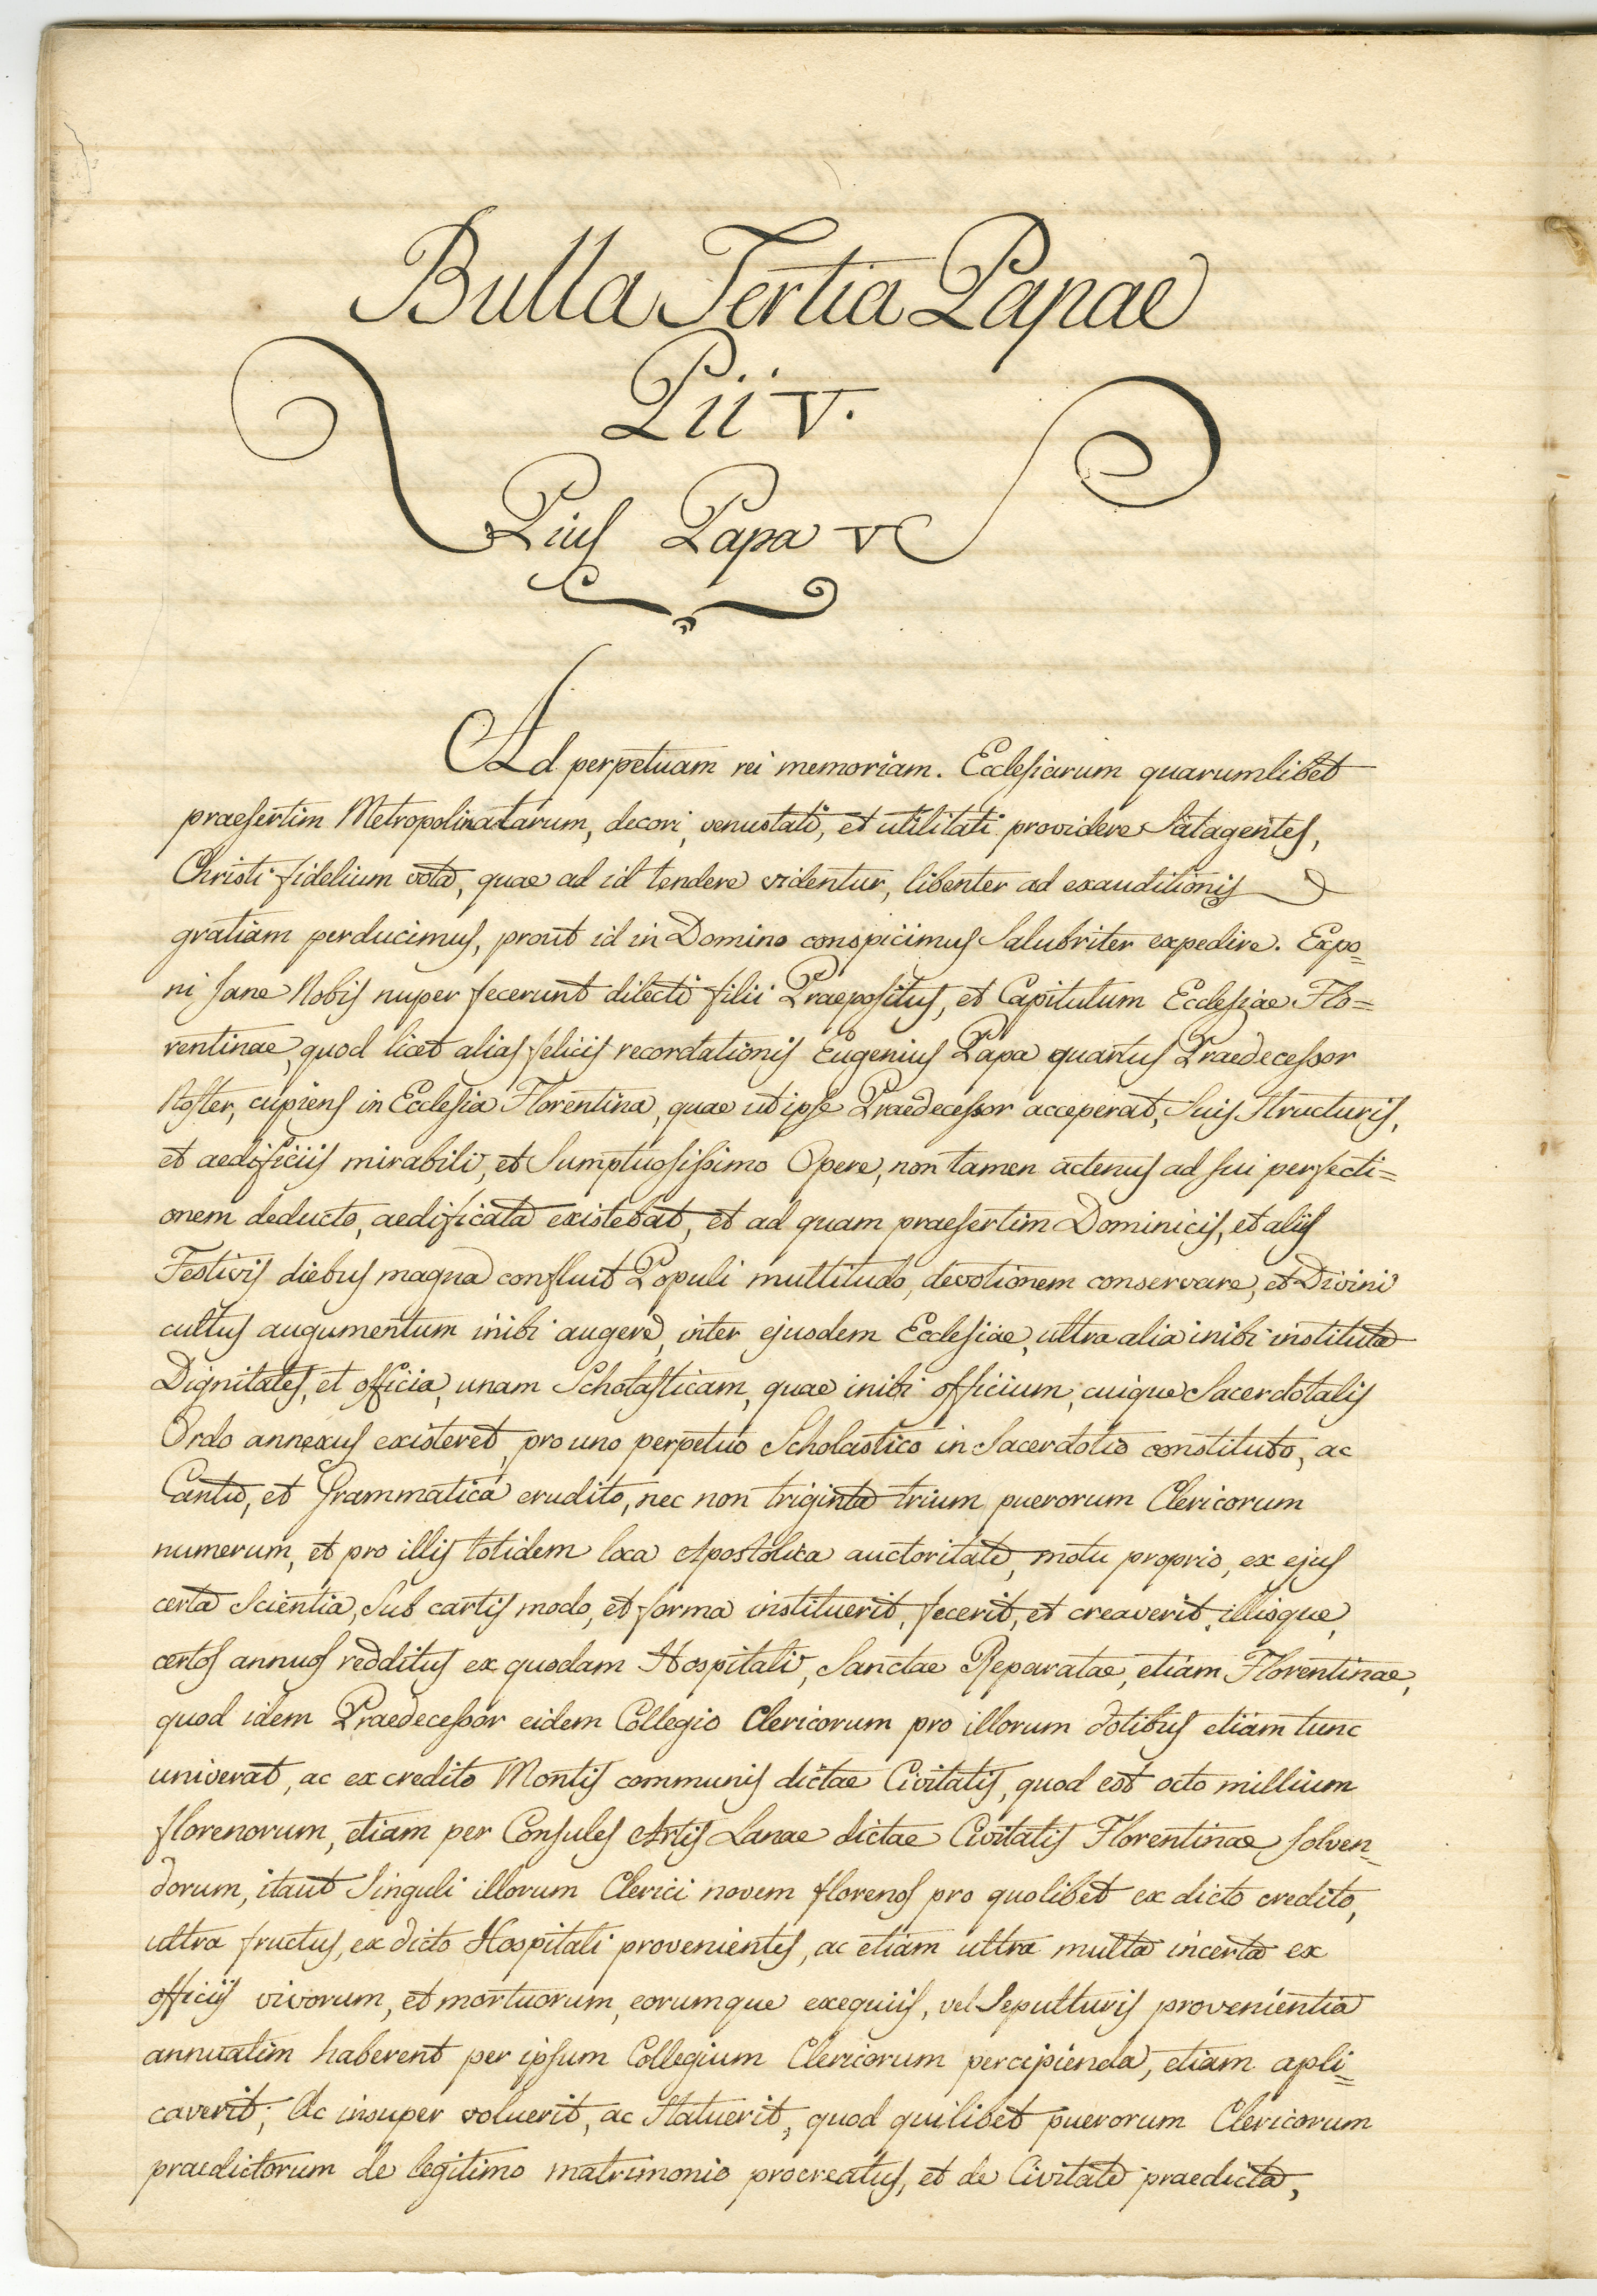 Bulla Tertia Papae
Pii V.
Pius Papa V
Ad perpetuam rei memoriam. Ecclesiarum quarumlibet
praesertim Metropolinatarum, decori, venustati, et utilitati providere Satagentes,
Christi fidelium vota, quae ad id tendere videntur, libenter ad exauditionis
gratiam perducimus, prout id in Domino conspicimus Salubriter expedire. Expo=
ni Sane Nobis nuper fecerunt dilecti filii Praepositus, et Capitulum Ecclesiae Flo=
rentinae, quod licet alias felicis recordationis Eugenius Papa quartus Praedecessor
Noster, cupiens in Ecclesia Florentina, quae ut ipse Praedecessor acceperat, Suis Structuris,
et aedificiis mirabili, et Sumptuosissimo Opere, non tamen actenus ad sui perfecti=
onem deducto, aedificata existebat, et ad quam praesertim Dominicis, et aliis
Festivis diebus magna confluit Populi multitudo, devotionem conservare, et Divini
cultus augumentum inibi augere, inter ejusdem Ecclesiae, ultra alia inibi instituta
Dignitates, et officia, unam Scholasticam, quae inibi officium, cuique Sacerdotalis
Ordo annexus existeret, pro uno perpetuo Scholastico in Sacerdotio constituto, ac
Cantu, et Grammatica erudito, nec non triginta trium puerorum Clericorum
numerum, et pro illis totidem loca Apostolica auctoritate, motu proprio, ex ejus
certa Scientia, Sub cartis modo, et forma instituerit, fecerit, et creaverit, illisque,
certos annuos redditus ex quodam Hospitali, Sanctae Reparatae, etiam Florentinae,
quod idem Praedecessor eidem Collegio Clericorum pro illorum dotibus etiam tunc
univerat, ac ex credito Montis communis dictae Civitatis, quod est octo millium
florenorum, etiam per Consules Artis Lanae dictae Civitatis Florentinae solven=
dorum, itaut Singuli illorum Clerici novem florenos pro quolibet ex dicto credito,
ultra fructus, ex dicto Hospitali provenientes, ac etiam ultra multa incerta ex
officiis vivorum, et mortuorum, eorumque exequiis, vel Sepulturis provenientia
annuatim haberent per ipsum Collegium Clericorum percipienda, etiam apli=
caverit; Ac insuper voluerit, ac Statuerit, quod quilibet puerorum Clericorum
praedictorum de legitimo matrimonio procreatus, et de Civitate praedicta,